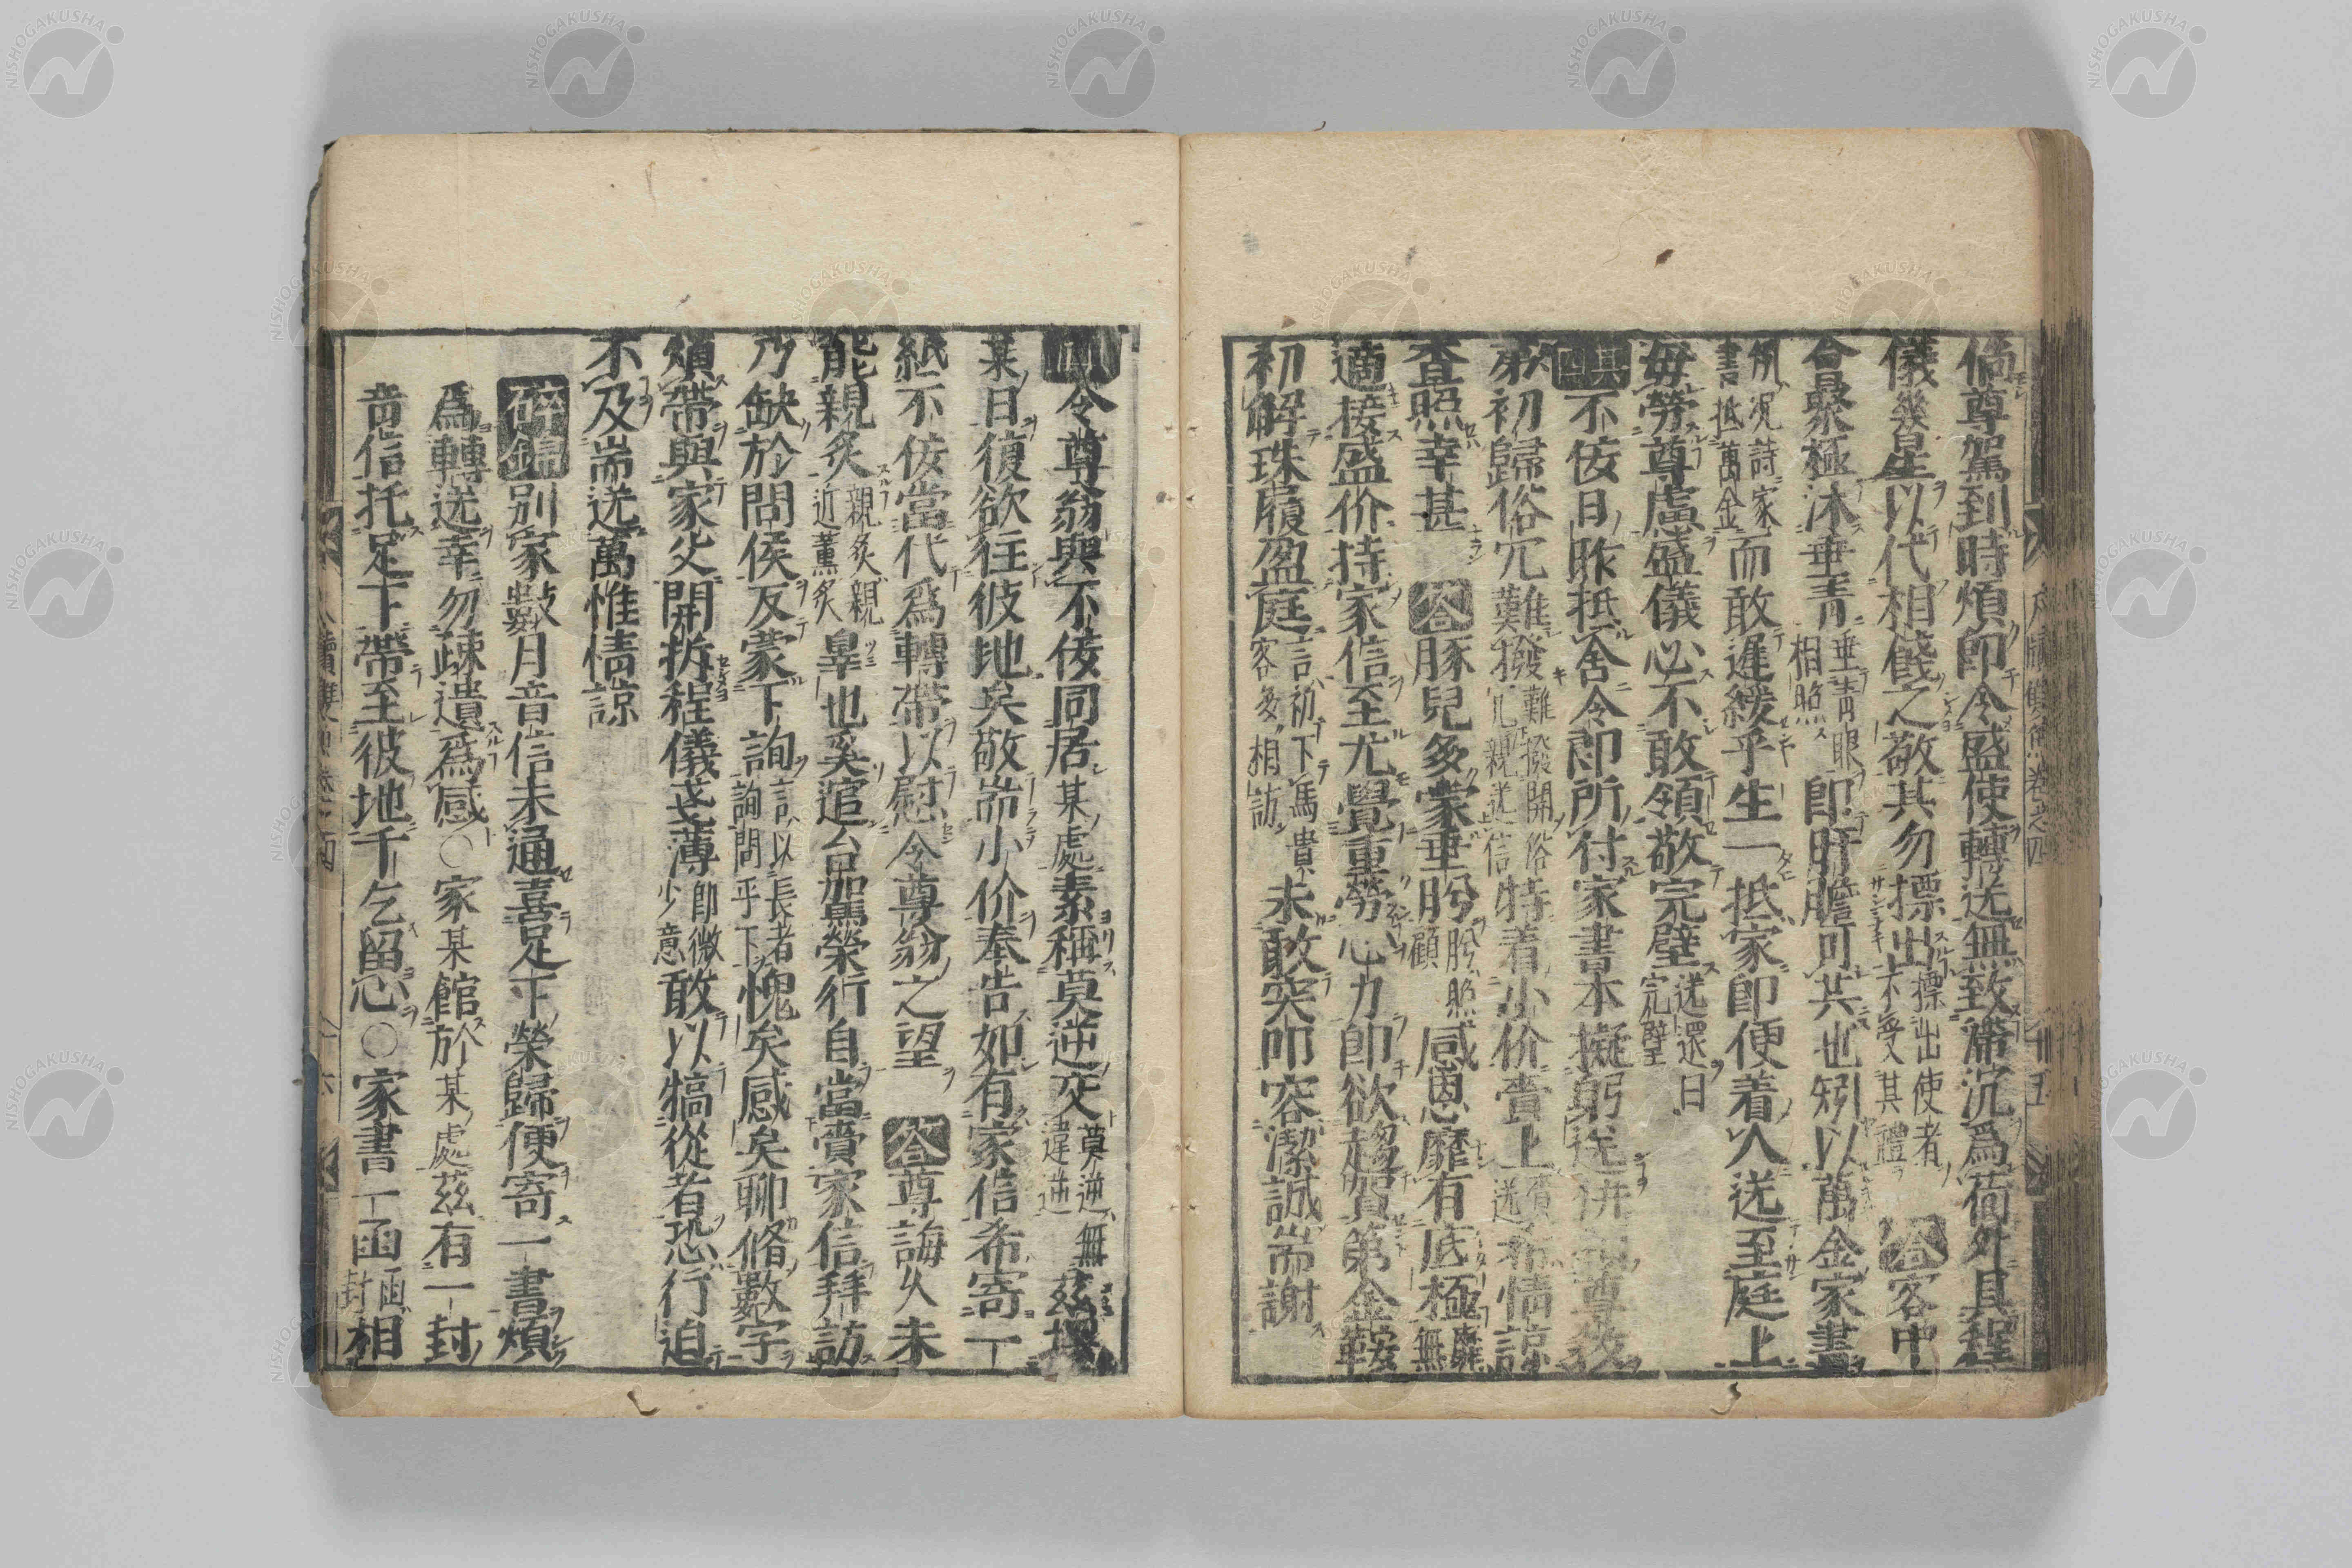 倘尊駕到時煩即令盛使轉送無致滯沉爲荷外具程
儀幾星以代相餞之敬其勿摽出摽出使者不受其禮答客中
合聚極沐垂青垂青眼相照即肝膽可共也矧以萬金家書
例况詩家書抵萬金而敢遲緩乎生一抵家即便着人送至庭上
毋勞尊慮盛儀必不敢領敬完璧送還曰完璧
不侫日昨抵舍令郎所付家書本擬躬送尊
初歸俗冗難撥難撥開俗冗親送信特着小价賫上希情諒
查照幸甚答豚兒多蒙垂盻盻照顧感恩靡有底極靡無
適接盛价持家信至尤覺重勞心力即欲趨賀第金鞍
初解珠履盈庭言初下馬貴客多相訪未敢突叩容潔誠耑謝
令尊翁與不侫同居某處素稱莫逆交莫逆無違逆茲
某日復欲往彼地矣敬耑小价奉告如有家信希寄一
紙不侫當代爲轉帶以慰令尊翁之望答尊誨久未
能親炙親炙親近薰炙辠也奚逭台駕榮行自當賫家信拜訪
乃缺於問候反蒙下詢言以長者詢問乎下愧矣感矣聊脩數字
煩帶與家父開拆程儀芰薄即微少意敢以犒從者恐行迫
不及耑送萬惟情諒
碎錦別家數月音信未通喜足下榮歸便寄一書煩
爲轉送幸勿疎遺爲感○家某館於某處茲有一封
音信托足下帶至彼地千乞留心○家書一函函封相